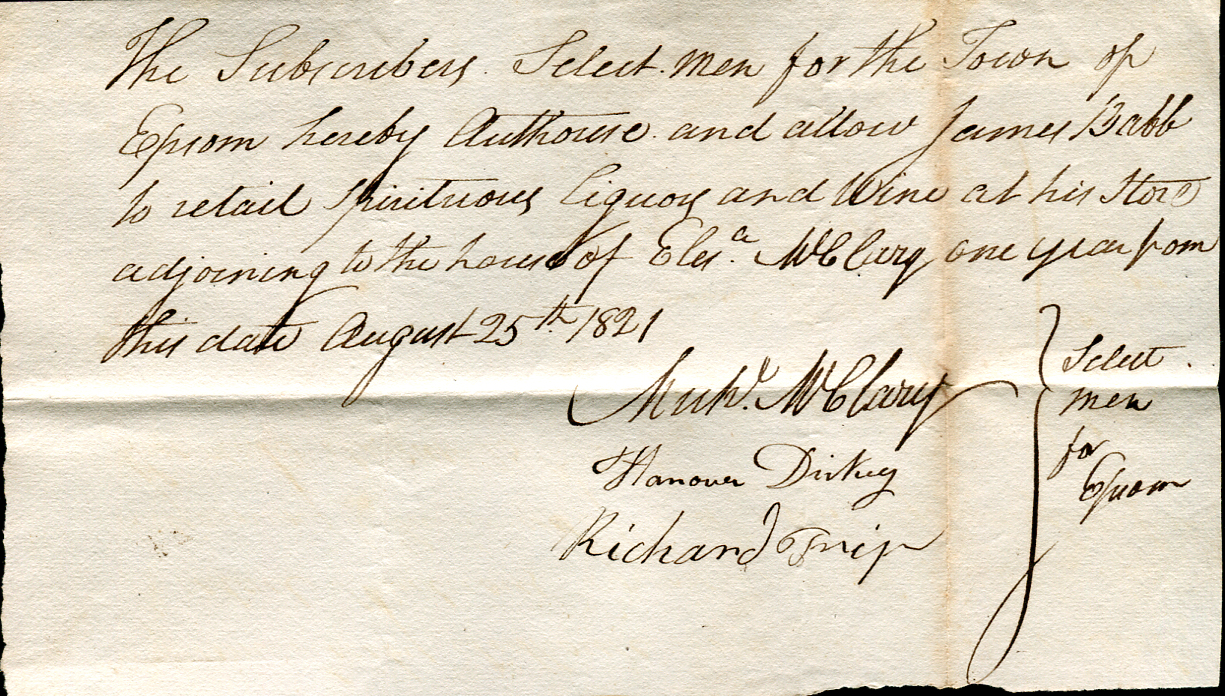 The Subscribers Select men for the Town of
Epsom hereby Authorise and allow James Babb
to retail spirituous liquors and Wine at his store
adjoining to the house of Eles.a McClary one year from
this date August 25th 1821
Michl. McClary
Hanover Dickey
Richard Tripp
Select
men
for
Epsom